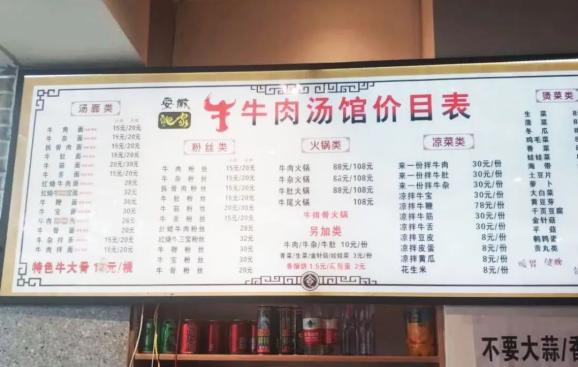 安徽
牛肉汤馆价目表
汤面类
牛肉面 15元/20元
牛杂面 15元/20元
拆骨肉面 15元/20元
牛肚面 15元/20元
牛筋面
牛舌面
红烧牛肉面 28元
牛鞭面 30元
牛宝面 30元
牛骨面
牛杂拌面
牛肉拌面
特色牛大骨
粉丝类
牛肉粉丝 15元/20元
牛杂粉丝 15元/20元
拆骨肉粉丝 15元/20元
牛肚粉丝 15元/20元
牛筋粉丝
牛舌粉丝 15元/20元
红烧牛肉粉丝 28元
红烧牛三宝粉丝 32元
牛鞭粉丝 30元
牛宝粉丝 30元
牛骨粉丝 20元
火锅类
牛肉火锅 88元/108元
牛杂火锅 88元/108元
牛肚火锅 88元/108元
牛尾火锅 108元
牛排骨火锅
另加类
牛肉/牛杂/牛肚 10元/份
青菜/生菜/金针菇/娃娃菜 3元/份
凉菜类
来一份拌牛肉 30元/份
来一份拌牛肚 30元/份
来一份拌牛杂 30元/份
凉拌牛宝 30元/份
凉拌牛鞭 78元/份
凉拌牛筋 30元/份
凉拌牛舌 30元/份
凉拌豆皮 8元/份
凉拌皮蛋 8元/份
凉拌黄瓜 8元/份
花生米 8元/份
烫菜类
生菜
菠菜
冬瓜
鸡毛菜
香菜
娃娃菜
海带
土豆片
萝卜
大白菜
黄豆芽
千页豆腐
金针菇
平菇
鹌鹑蛋
贡丸类
不要大蒜/香